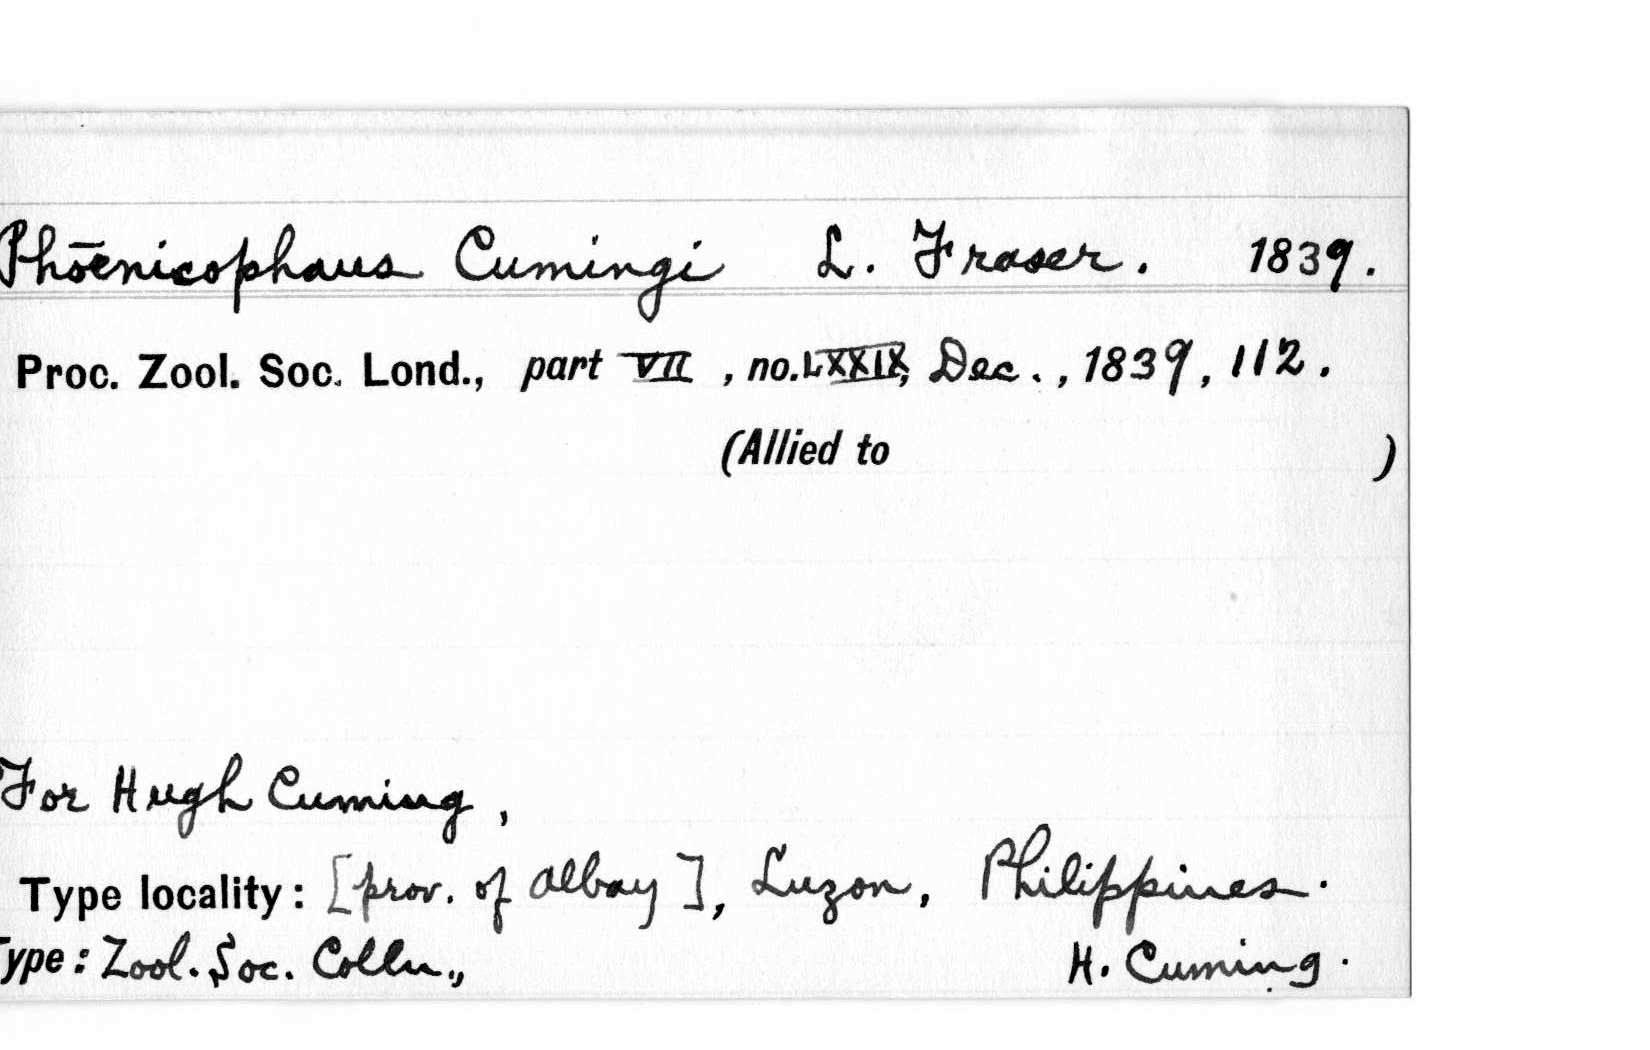 Phōenicophaus Cumingi L. Fraser. 1839.
Proc. Zool. Soc. Lond., part VII, no. LXXIX, Dec., 1839, 112.
(Allied to )
For Hugh Cuming,
Type locality: [prov. of Albay], Luzon, Philippines.
Type: Zool. Soc. Colln., H. Cuming.